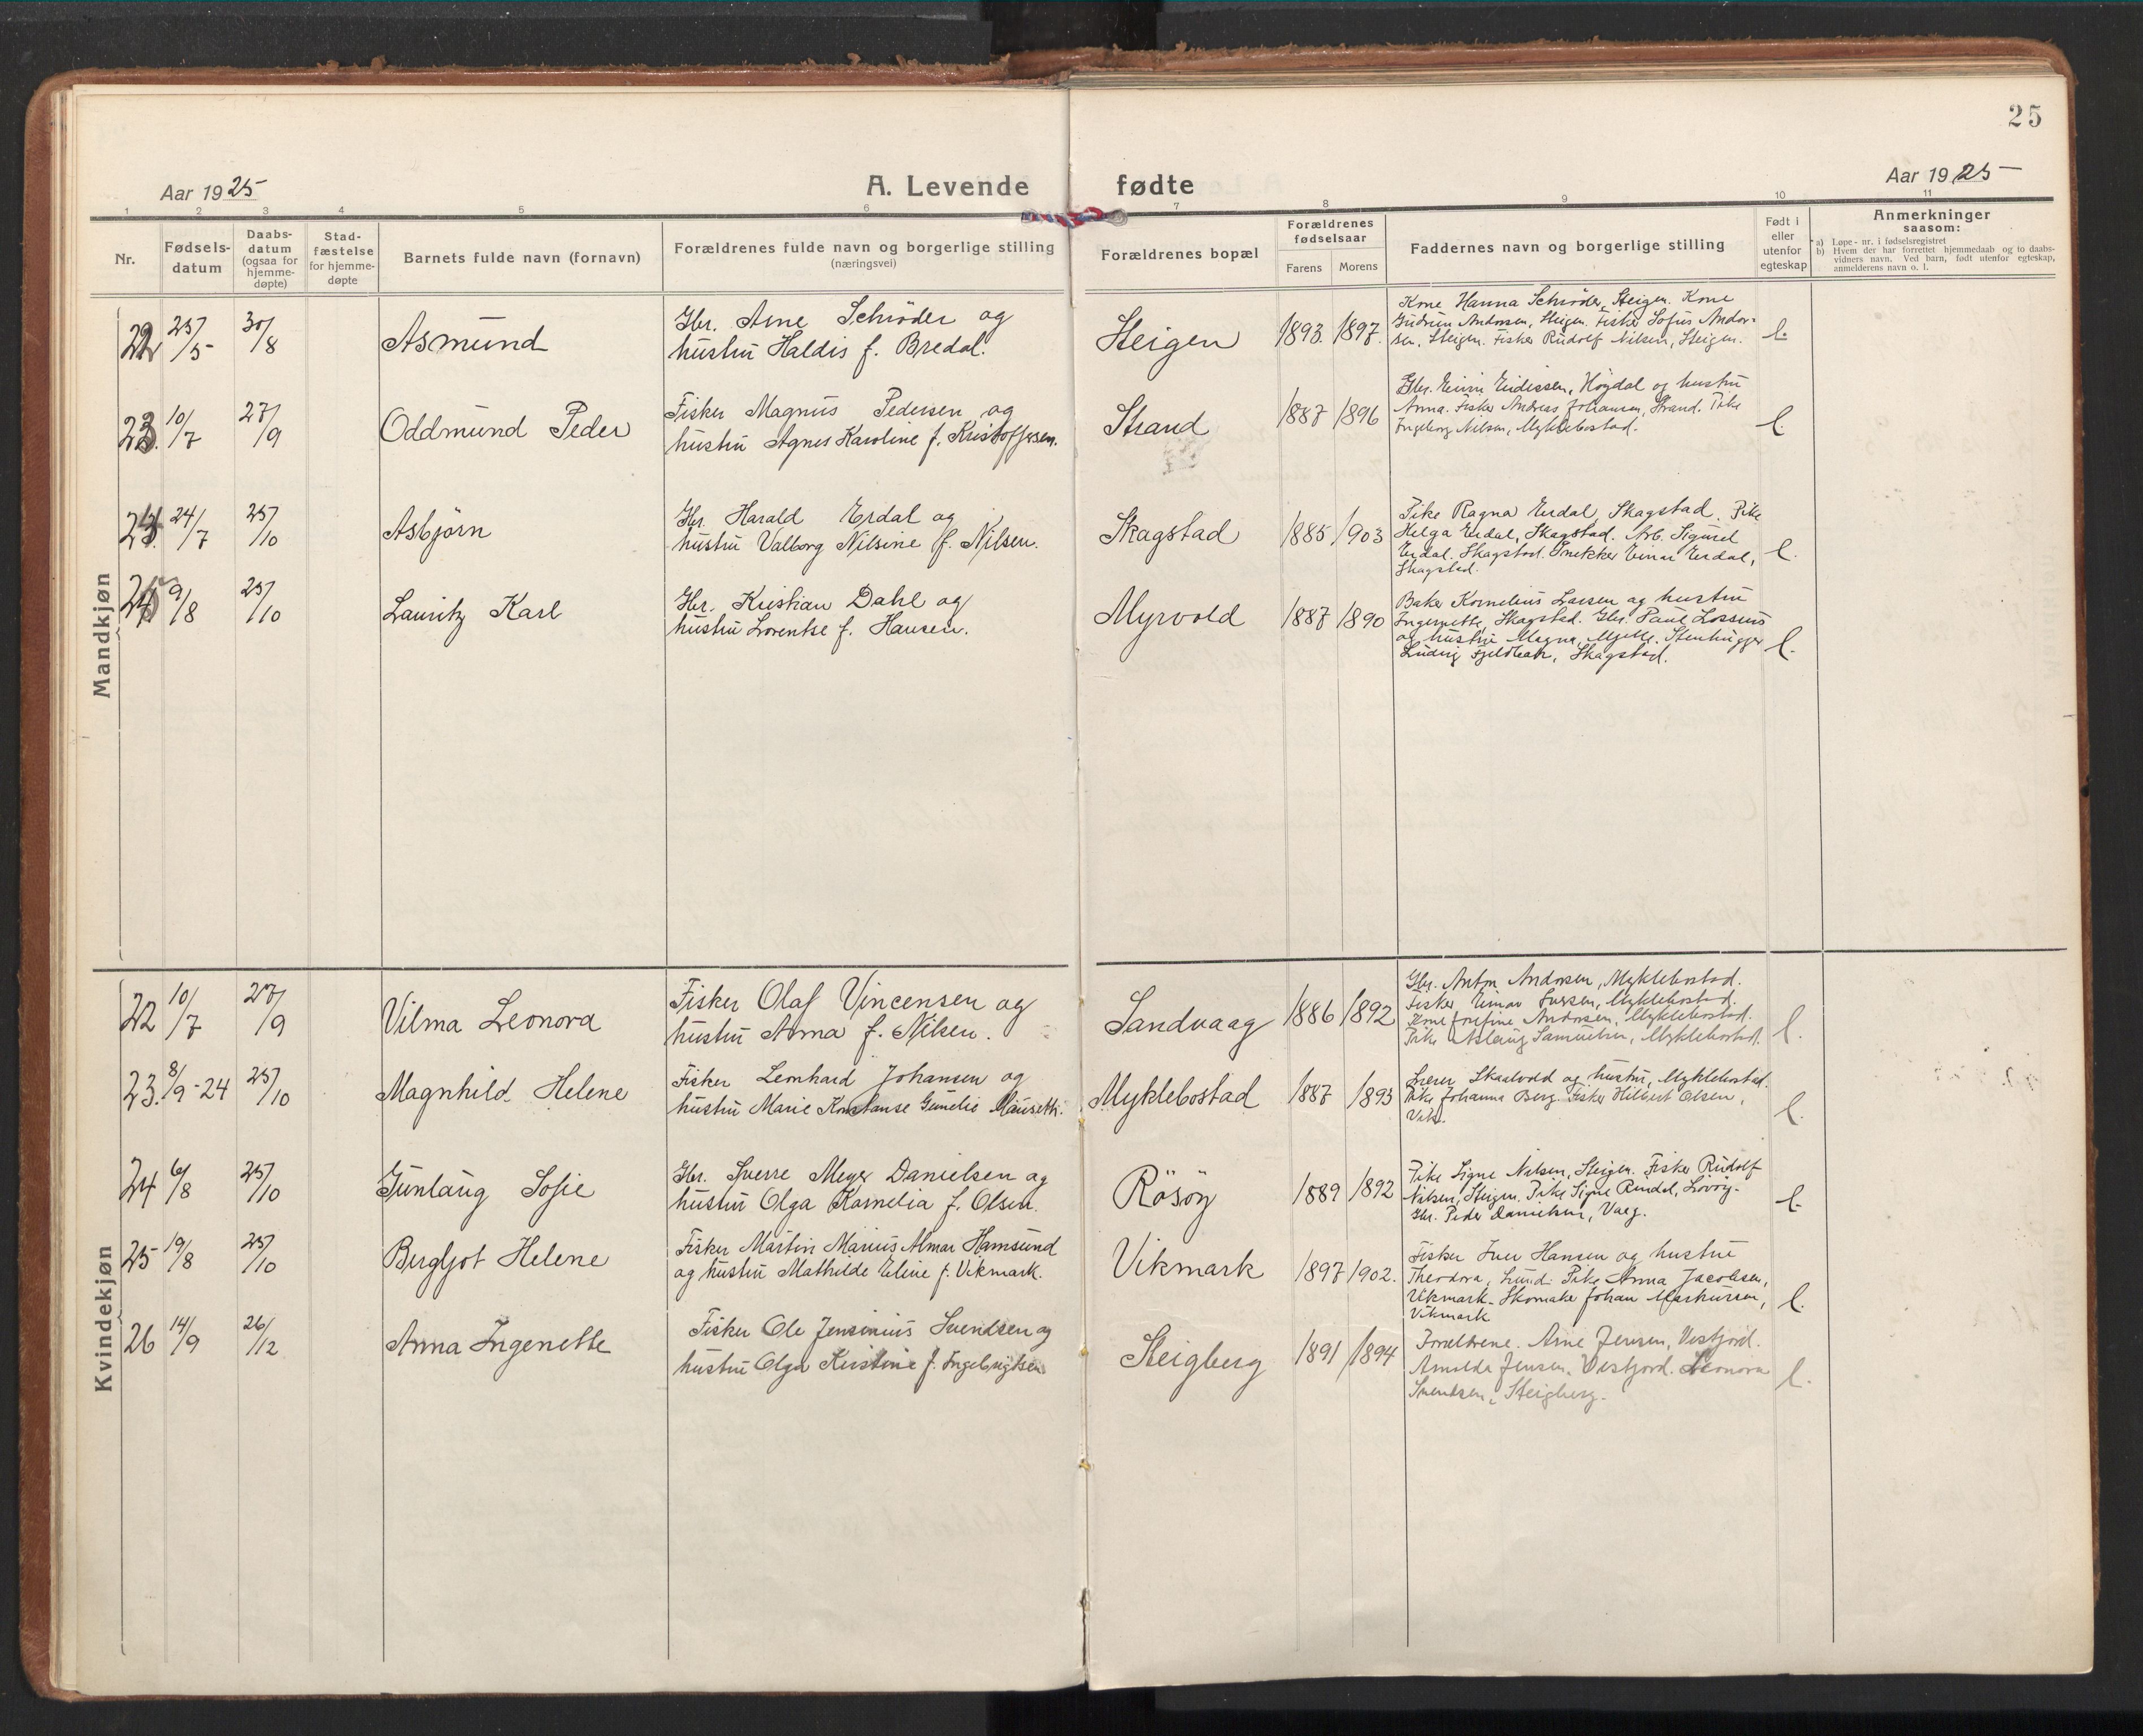 25
Aar 1925
A. Levende
fødte
Aar 1925
1 2 3 4 5 6 7 8 9 10 11
Nr.
Fødsels-
datum
Daabs-
datum
(ogsaa for
hjemme-
døpte)
Stad-
fæstelse
for hjemme-
døpte
Barnets fulde navn (fornavn)
Forældrenes fulde navn og borgerlige stilling
(næringsvei)
Forældrenes bopæl
Forældrenes
fødselsaar
Farens Morens
Faddernes navn og borgerlige stilling
Født i
eller
utenfor
egteskap
Anmerkninger
saasom:
a) Løpe-nr. i fødselsregistret
b) Hvem der har forrettet hjemmedaab og to daabs-
vidners navn. Ved barn, født utenfor egteskap,
anmelderens navn o. l.
Mandkjøn
22 25/5 30/8 Asmund
Gbr. Arne Schrøder og
hustru Haldis f. Bredal.
Steigen 1893. 1897.
Kone Hanna Schrøder, Steigen. Kone
Gudrun Andorsen, Steigen. Fisker Sofus Andor-
sen, Steigen. Fisker Rudolf Nilsen, Steigen.
l.
23. 10/7 27/9 Oddmund Peder
Fisker Magnus Pedersen og
hustru Agnes Karoline f. Kristoffersen.
Strand 1887 1896
Gbr. Høgdal og hustru
Anna. Fisker Andreas Johansen, Strand. Pike
Ingeborg Nilsen, Myklebostad.
l.
24. 24/7 25/10 Asbjørn
Gbr. Harald Erdal og
hustru Valborg Nilsine f. Nilsen.
Skagstad 1885 1903
Pike Ragna Erdal, Skagstad. Pike
Helga Erdal, Skagstad. Arb. Sigurd
Erdal. Skagstad. Snekker Einar Erdal,
Skagstad.
l.
25 9/8 25/10 Lauritz Karl
Gbr. Kristian Dahl og
hustru Lorentse f. Hansen.
Myrvold 1887 1890
Baker Kornelius Larsen og hustru
Ingernette, Skagstad. Gbr. Paul Lossius
og hustru Magna, Stenhugger
Ludvig Skagstad.
l.
Kvindekjøn
22 10/7 27/9 Vilma Leonora
Fisker Olaf Vincensen og
hustru Anna f. Nilsen.
Sandvaag 1886 1892
Gbr. Anton Andorsen, Myklebostad.
Fisker Einar Iversen, Myklebostad.
Kone Josefine Andorsen, Myklebostad.
Pike Aslaug Samuelsen, Myklebostad.
l.
23. 8/9-24 25/10 Magnhild Helene
Fisker Leonhard Johansen og
hustru Marie Konstanse Gunelie Mausetth.
Myklebostad 1887 1893
Lærer Skaalvold og hustru, Myklebostad.
Pike Johanna Berg. Fisker Hilbert Olsen,
Vik.
l.
24 6/8 25/10 Gunlaug Sofie
Gbr. Sverre Meyer Danielsen og
hustru Olga Kornelia f. Olsen.
Røsøy 1889 1892
Pike Signe Nilsen, Steigen. Fisker Rudolf
Nilsen, Steigen. Pike Signe Rindal, Lovøy.
Gbr. Peder Danielsen, Vaag.
l.
25 19/8 25/10 Bergljot Helene
Fisker Martin Marius Almar Hamsund
og hustru Mathilde Eline f. Vikmark.
Vikmark 1897 1902.
Fisker Iver Hansen og hustru
Theodora, Lund. Pike Anna Jacobsen,
Vikmark. Skomaker Johan Markussen,
Vikmark
l.
26 14/9 26/12 Anna Ingenette
Fisker Ole Jensenius Svendsen og
hustru Olga Kirstine f. Ingebrigtsen
Steigberg 1891 1894
Forældrene. Arne Jensen, Vestfjord.
Arnolda Jensen, Vestfjord. Leonora
Svendsen, Steigberg.
l.